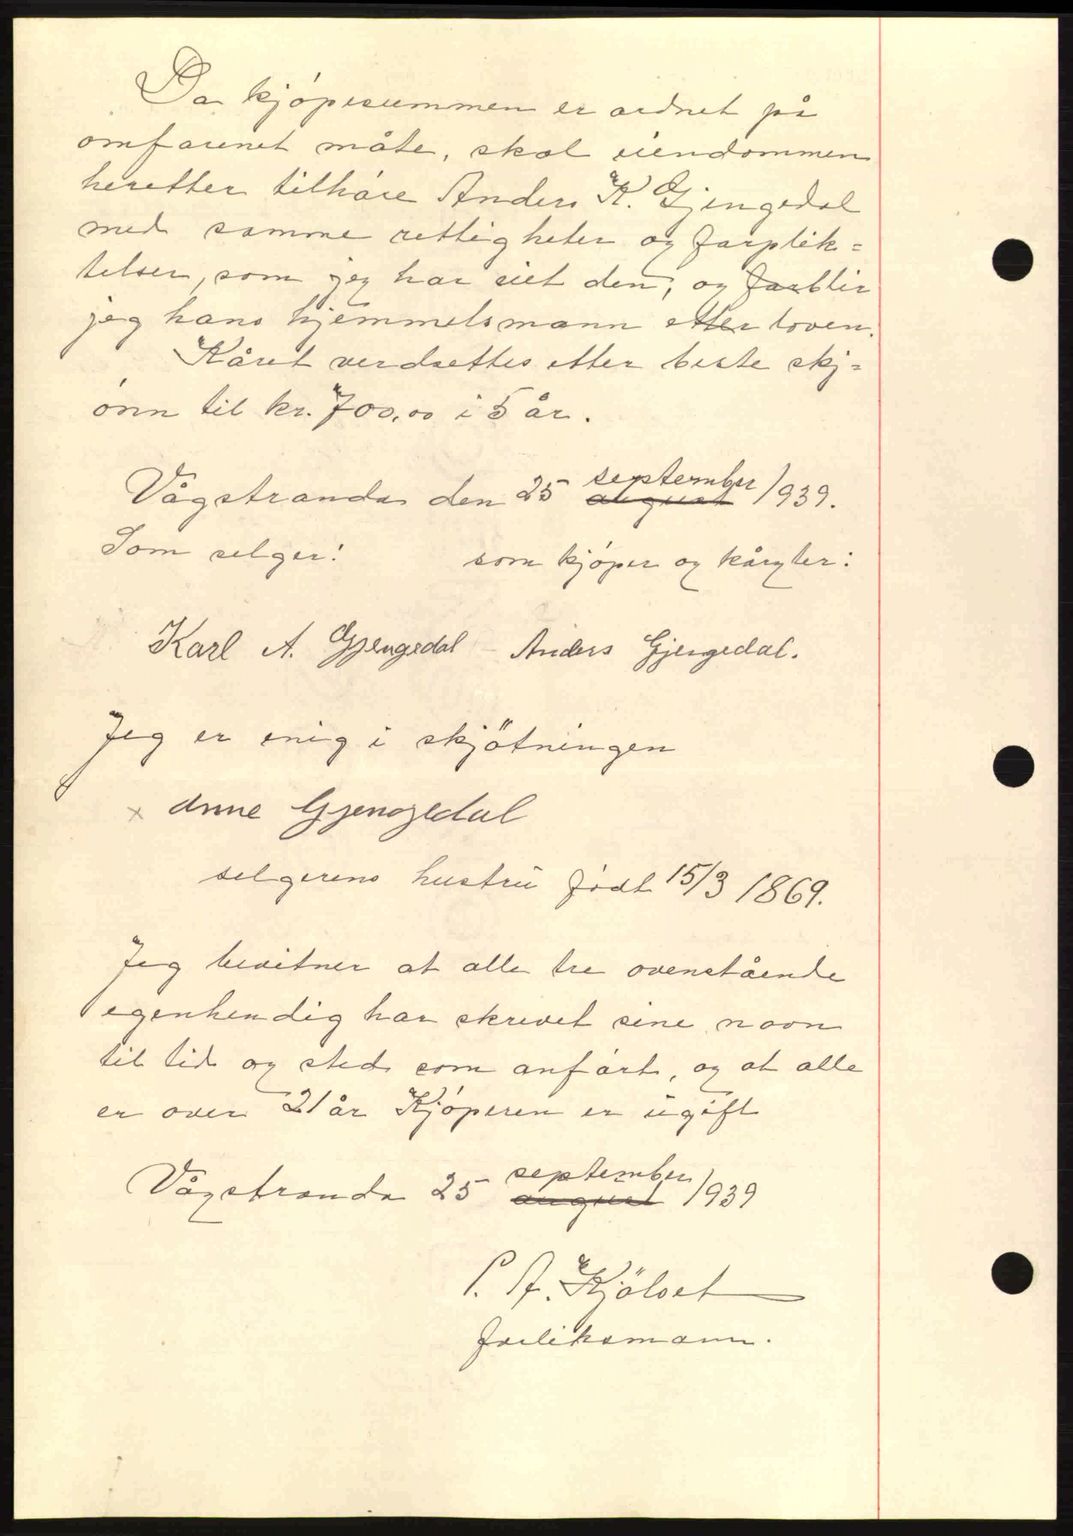 Da kjøpesummen er ordnet på
omforenet måte, skal eiendommen
heretter tilhøre Anders K. Gjengedal
med samme rettigheter og forplik=
telser, som jeg har eiet den, og forblir
jeg hans hjemmelsmann etter loven.
Kåret verdsettes etter beste skj=
ønn til kr. 700,00 i 5 år.
september
Vågstranda den 25 august 1939.
Som selger: som kjøper og kåryter:
Karl A. Gjengedal Anders Gjengedal.
Jeg er enig i skjötningen
x Anne Gjengedal
selgerens hustru født 15/3 1869.
Jeg bevitner at alle tre ovenstående
egenhendig har skrevet sine navn
til tid og sted som anført, og at alle
er over 21 år Kjøperen er ugift
september
Vågstranda 25 august 1939
P. A. Kjölset
forliksmann.